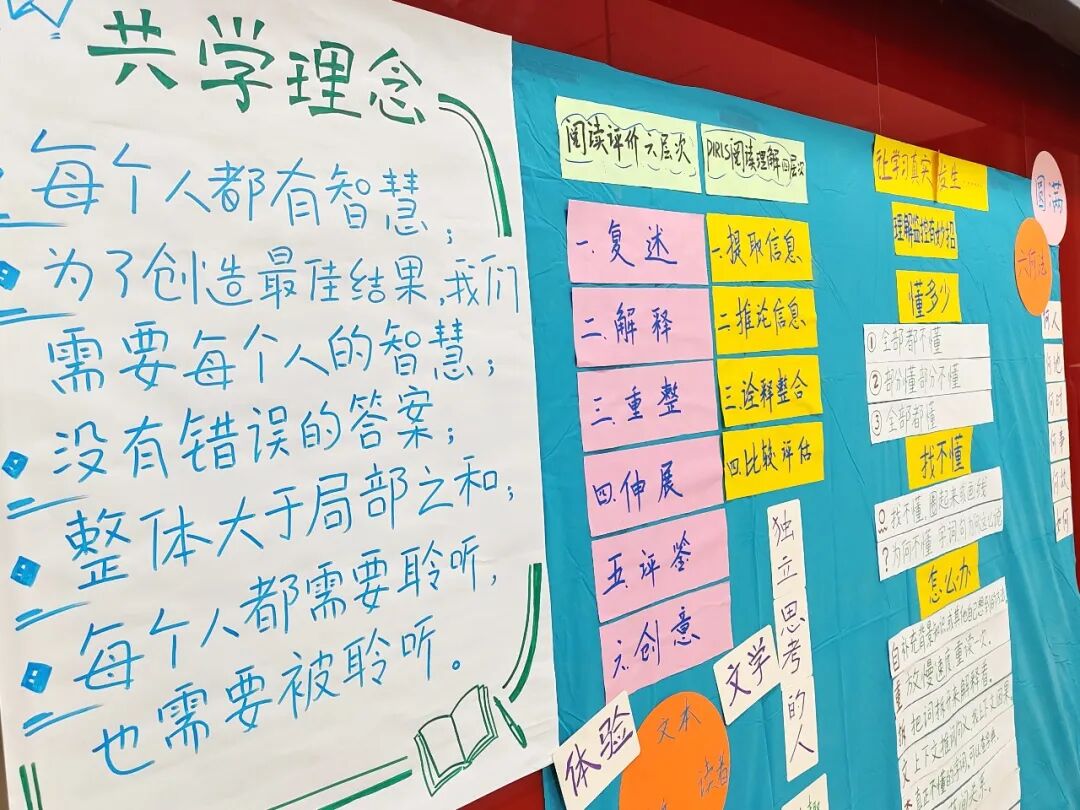 共学理念
每个人都有智慧；
为了创造最佳结果，我们
需要每个人的智慧；
没有错误的答案；
整体大于局部之和；
每个人都需要聆听，
也需要被聆听。
阅读评价六层次
一.复述
二.解释
三.重整
四.伸展
五.评鉴
六.创意
PIRLS阅读理解四层次
一.提取信息
二.推论信息
三.诠释整合
四.比较评估
独立思考的人
文学
体验
文本
读者
让学习真实发生……
理解监控有妙招
懂多少
①全部都不懂
②部分懂部分不懂
③全部都懂
找不懂
找不懂，圈起来或画线
？为何不懂，字词句为何这么说
怎么办
放慢速度重读一次。
圆满
六何法
何人
何地
何时
何事
何故
如何